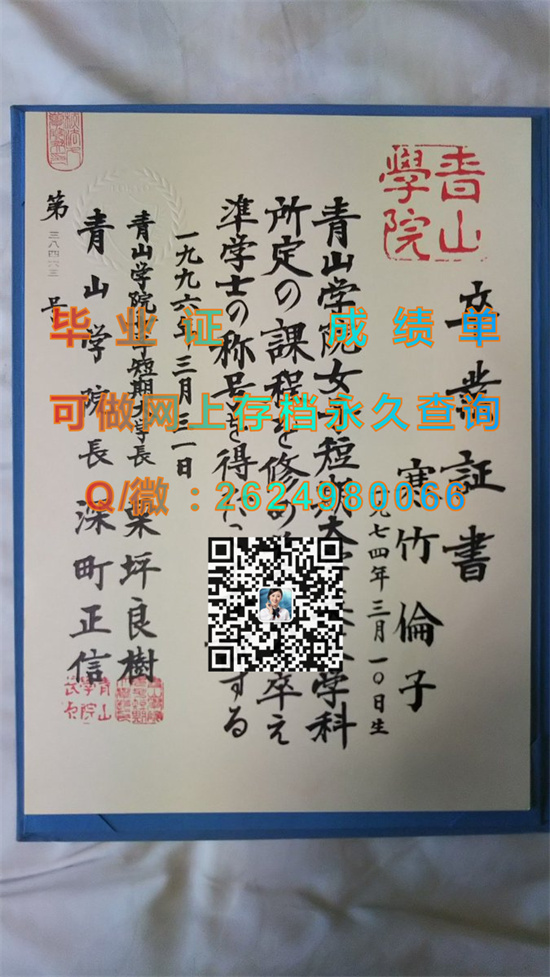 青山
學院
卒業証書
寒竹倫子
一九七四年三月一〇日生
青山学院女子短期大学 学科
所定の課程を修め 卒え
準学士の称号を得 する
一九九六年三月三一日
青山学院女子短期大学長 栗坪良樹
青山学院長 深町正信
第 三八四六三 号
毕业证 成绩单
可做网上存档永久查询
Q/微：2624980066